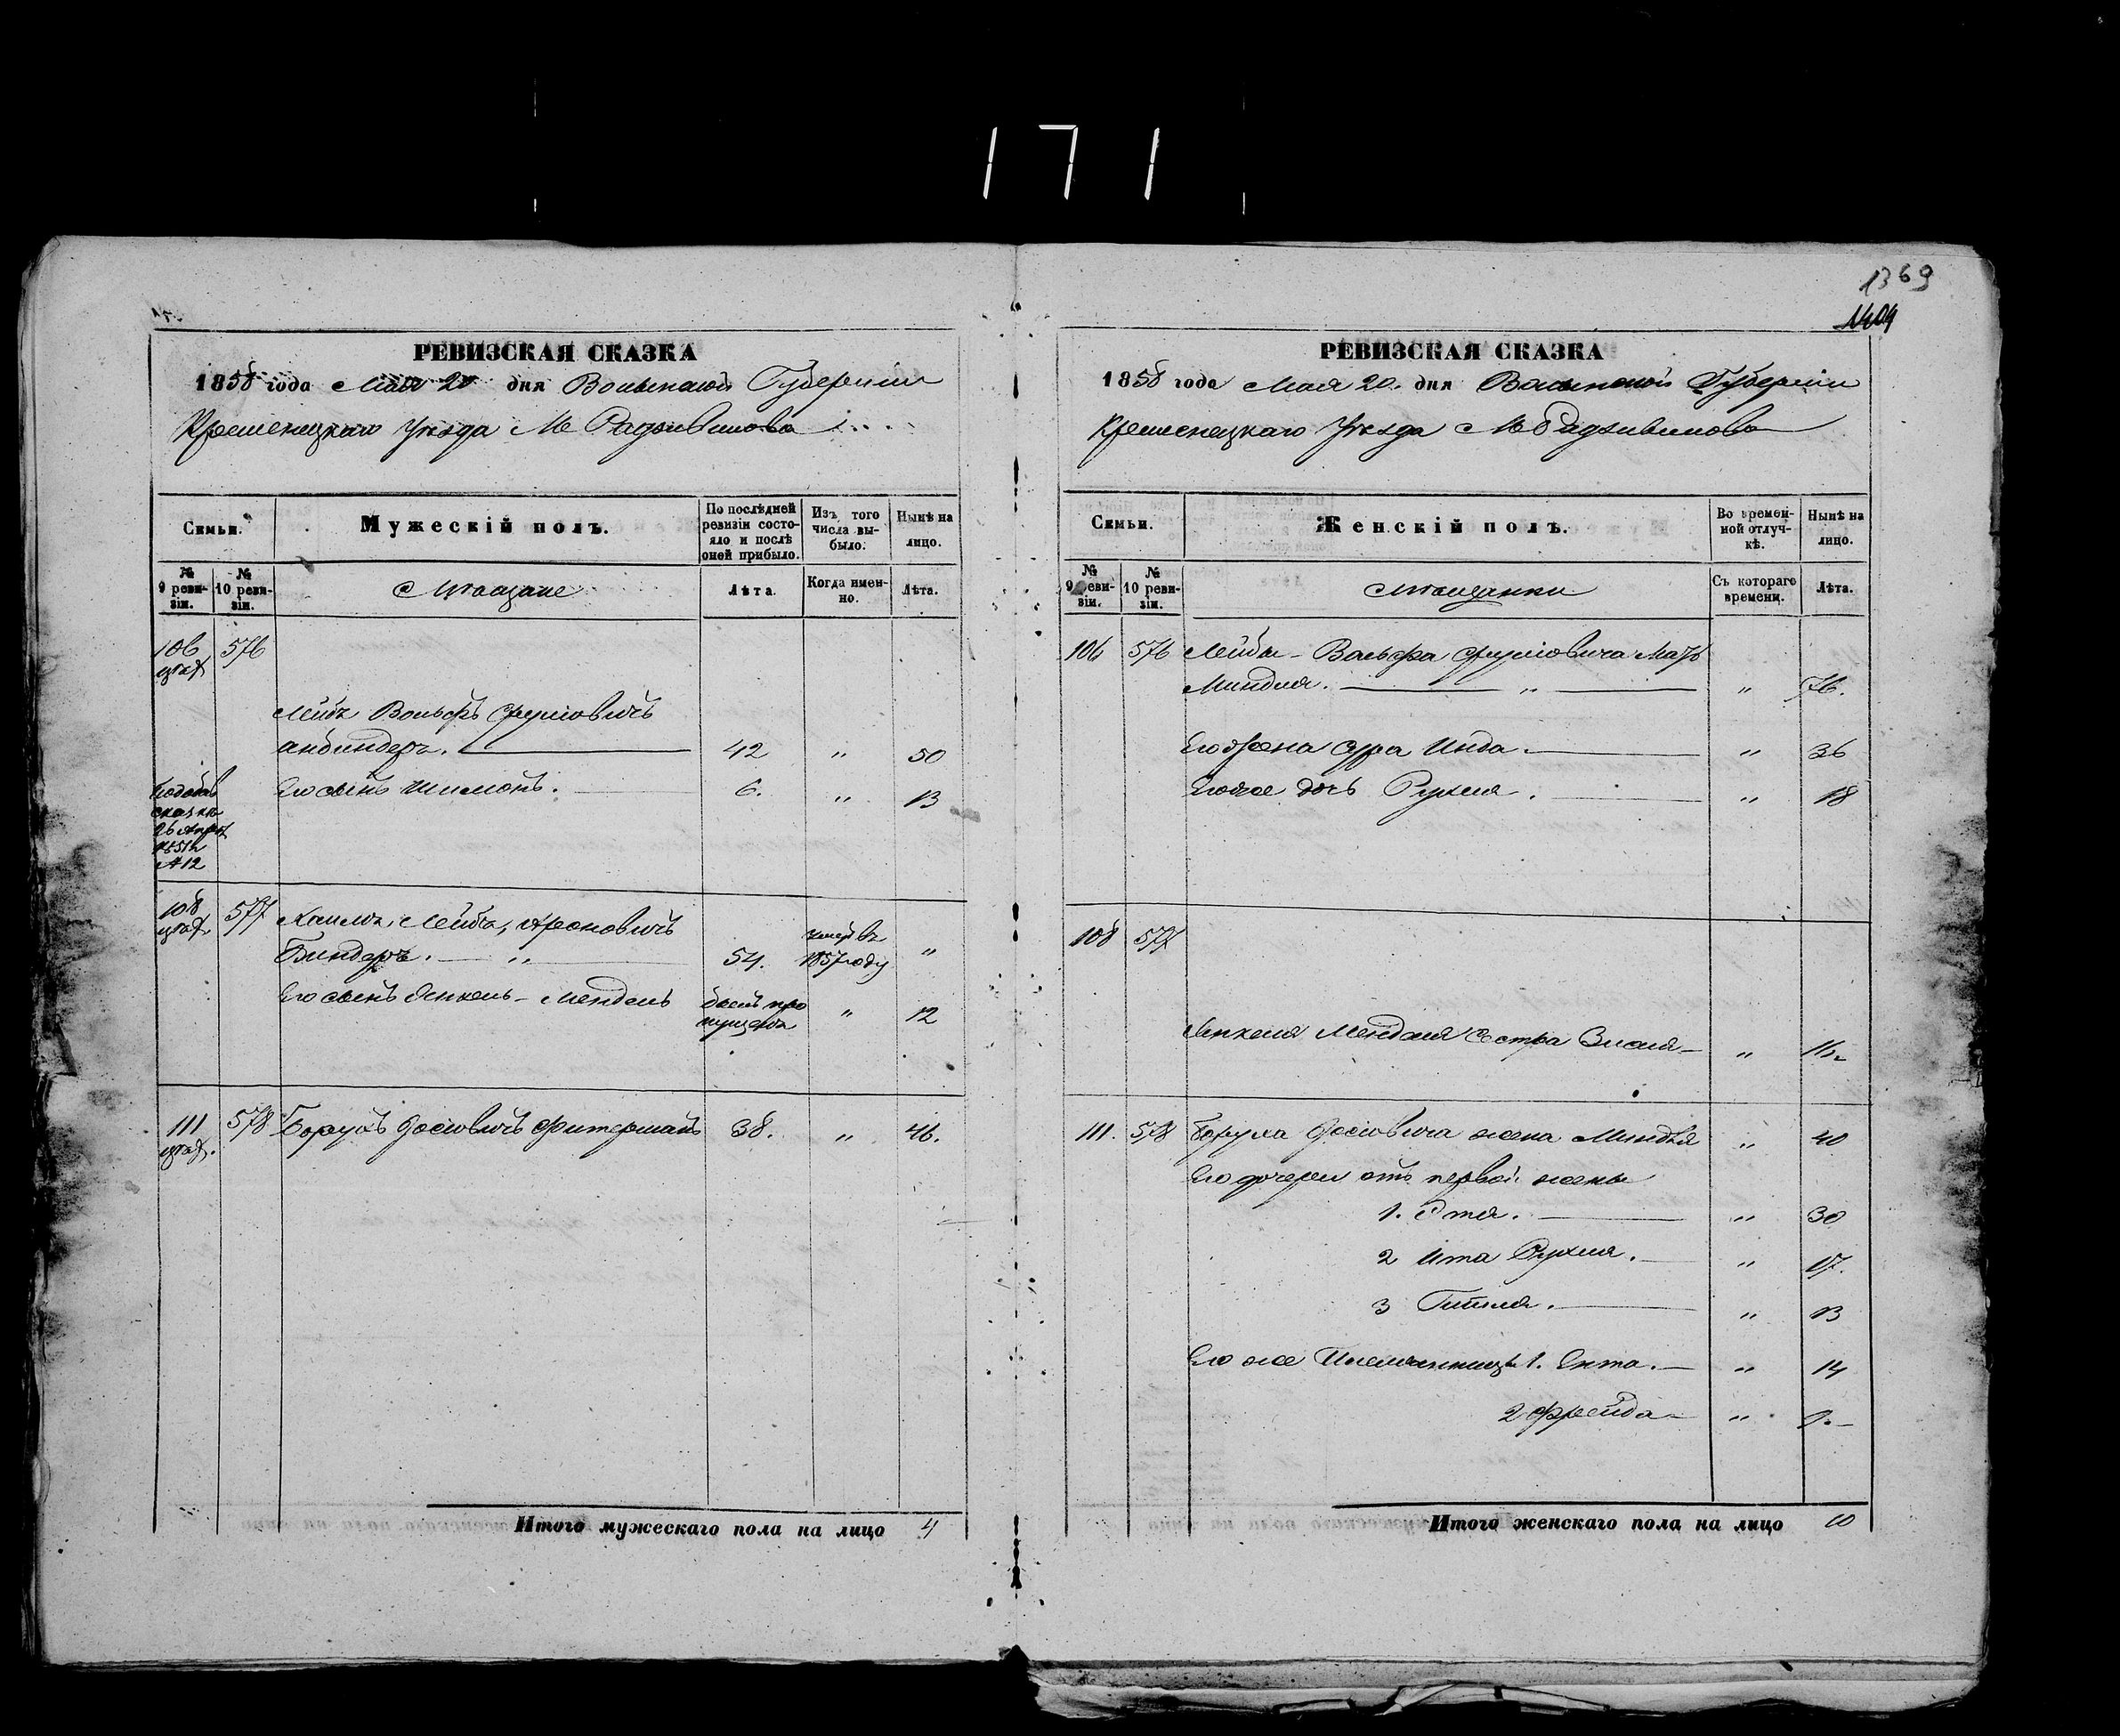 171
1369
1404
РЕВИЗСКАЯ СКАЗКА
1858 года Мая 20 дня Волынской Губернии
Кременецкаго Уезда М Радзивилова
Семьи.
Мужескій полъ.
По послѣдней ревизіи состояло и послѣ оней прибыло.
Изъ того числа выбыло.
Нынѣ на лицо.
№ 9 ревизіи.
№ 10 ревизіи.
Мѣщане
Лѣта.
Когда именно.
Лѣта.
106 576
Лейба Вольфъ
42 " 50
Его сынъ Шимонъ. 6. " 13
сказкѣ
26
№ 12
108 577 Хаимъ, Лейба, Ароновичъ
Биндеръ. " 54. 1857 году "
Его сынъ Янкель-Мендель былъ про- " 12
пущенъ
111 578 Борухъ Іосіовичъ Фитерманъ 38. " 46.
Итого мужескаго пола на лицо 4
РЕВИЗСКАЯ СКАЗКА
1858 года Мая 20. дня Волынской Губерніи
Кременецкаго Уезда М Радзивилова
Семьи.
Женскій полъ.
Во временной отлучкѣ.
Нынѣ на лицо.
№ 9 ревизіи.
№ 10 ревизіи.
Мѣщанки
Съ котораго времени.
Лѣта.
106 576 Лейбы-Вольфа мать
Миндля. " " 76.
Его жена Сура Инда. " 36
Его же дочь Рухля. " 18
108 577
Янкеля Менделя Сестра Зисля " 16
111. 578 Боруха Іосіовича жена Миндля " 40
Его дочери отъ первой жены
1. Этя. " 30
2 Ита Рухля. " 17.
3 Гитля. " 13
Его же Племянницы 1. Ента. " 14
2 Фрейда "
Итого женскаго пола на лицо 10